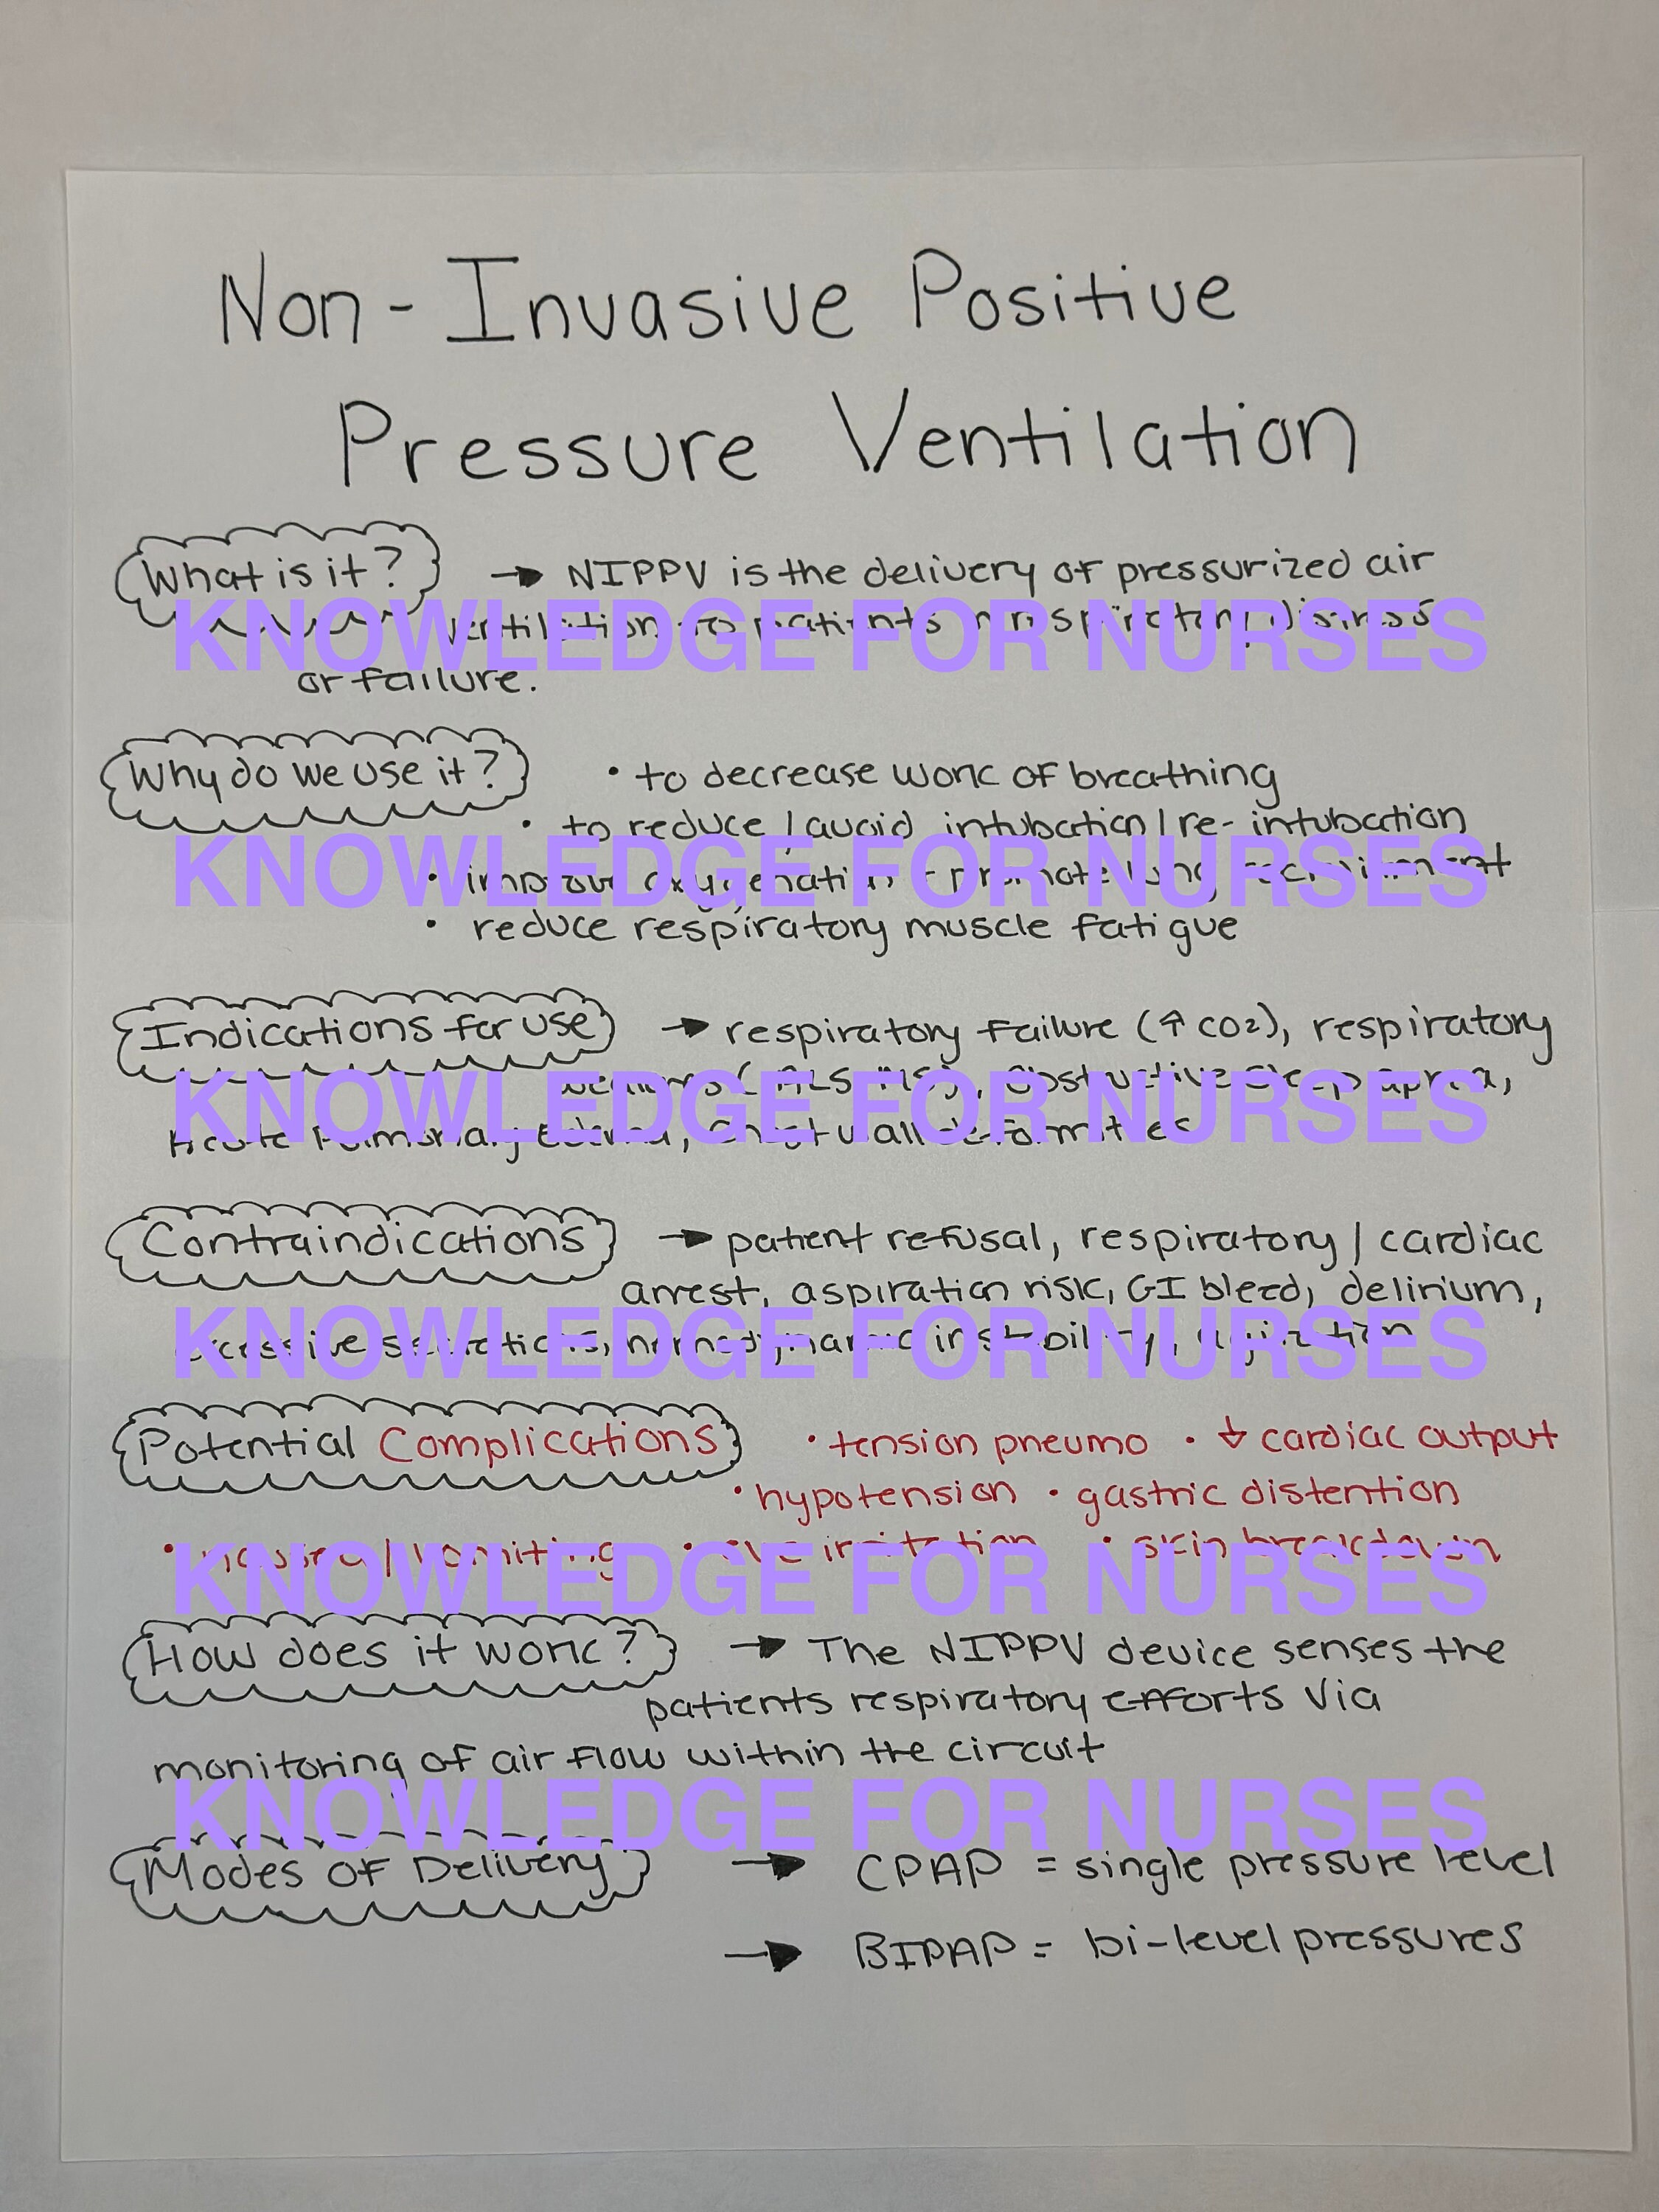 Non-Invasive Positive
Pressure Ventilation
What is it? → NIPPV is the delivery of pressurized air
ventilation to patients in respiratory distress
KNOWLEDGE FOR NURSES
or failure.
Why do we use it? • to decrease work of breathing
• to reduce / avoid intubation / re-intubation
KNOWLEDGE FOR NURSES
• improve oxygenation + promote lung recruitment
• reduce respiratory muscle fatigue
Indications for use → respiratory failure (↑ CO2), respiratory
weakness (ALS, MS), Obstructive Sleep apnea,
KNOWLEDGE FOR NURSES
Acute Pulmonary Edema, Chest wall deformities
Contraindications → patient refusal, respiratory / cardiac
arrest, aspiration risk, GI bleed, delirium,
KNOWLEDGE FOR NURSES
excessive secretions, hemodynamic instability, agitation
Potential Complications • tension pneumo • ↓ cardiac output
• hypotension • gastric distention
• nausea / vomiting • eye irritation • skin breakdown
KNOWLEDGE FOR NURSES
How does it work? → The NIPPV device senses the
patients respiratory efforts via
monitoring of air flow within the circuit
KNOWLEDGE FOR NURSES
Modes of Delivery → CPAP = single pressure level
→ BIPAP = bi-level pressures